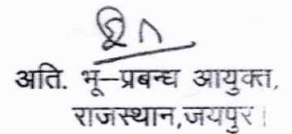 अति. भू-प्रबन्ध आयुक्त,
राजस्थान,जयपुर।